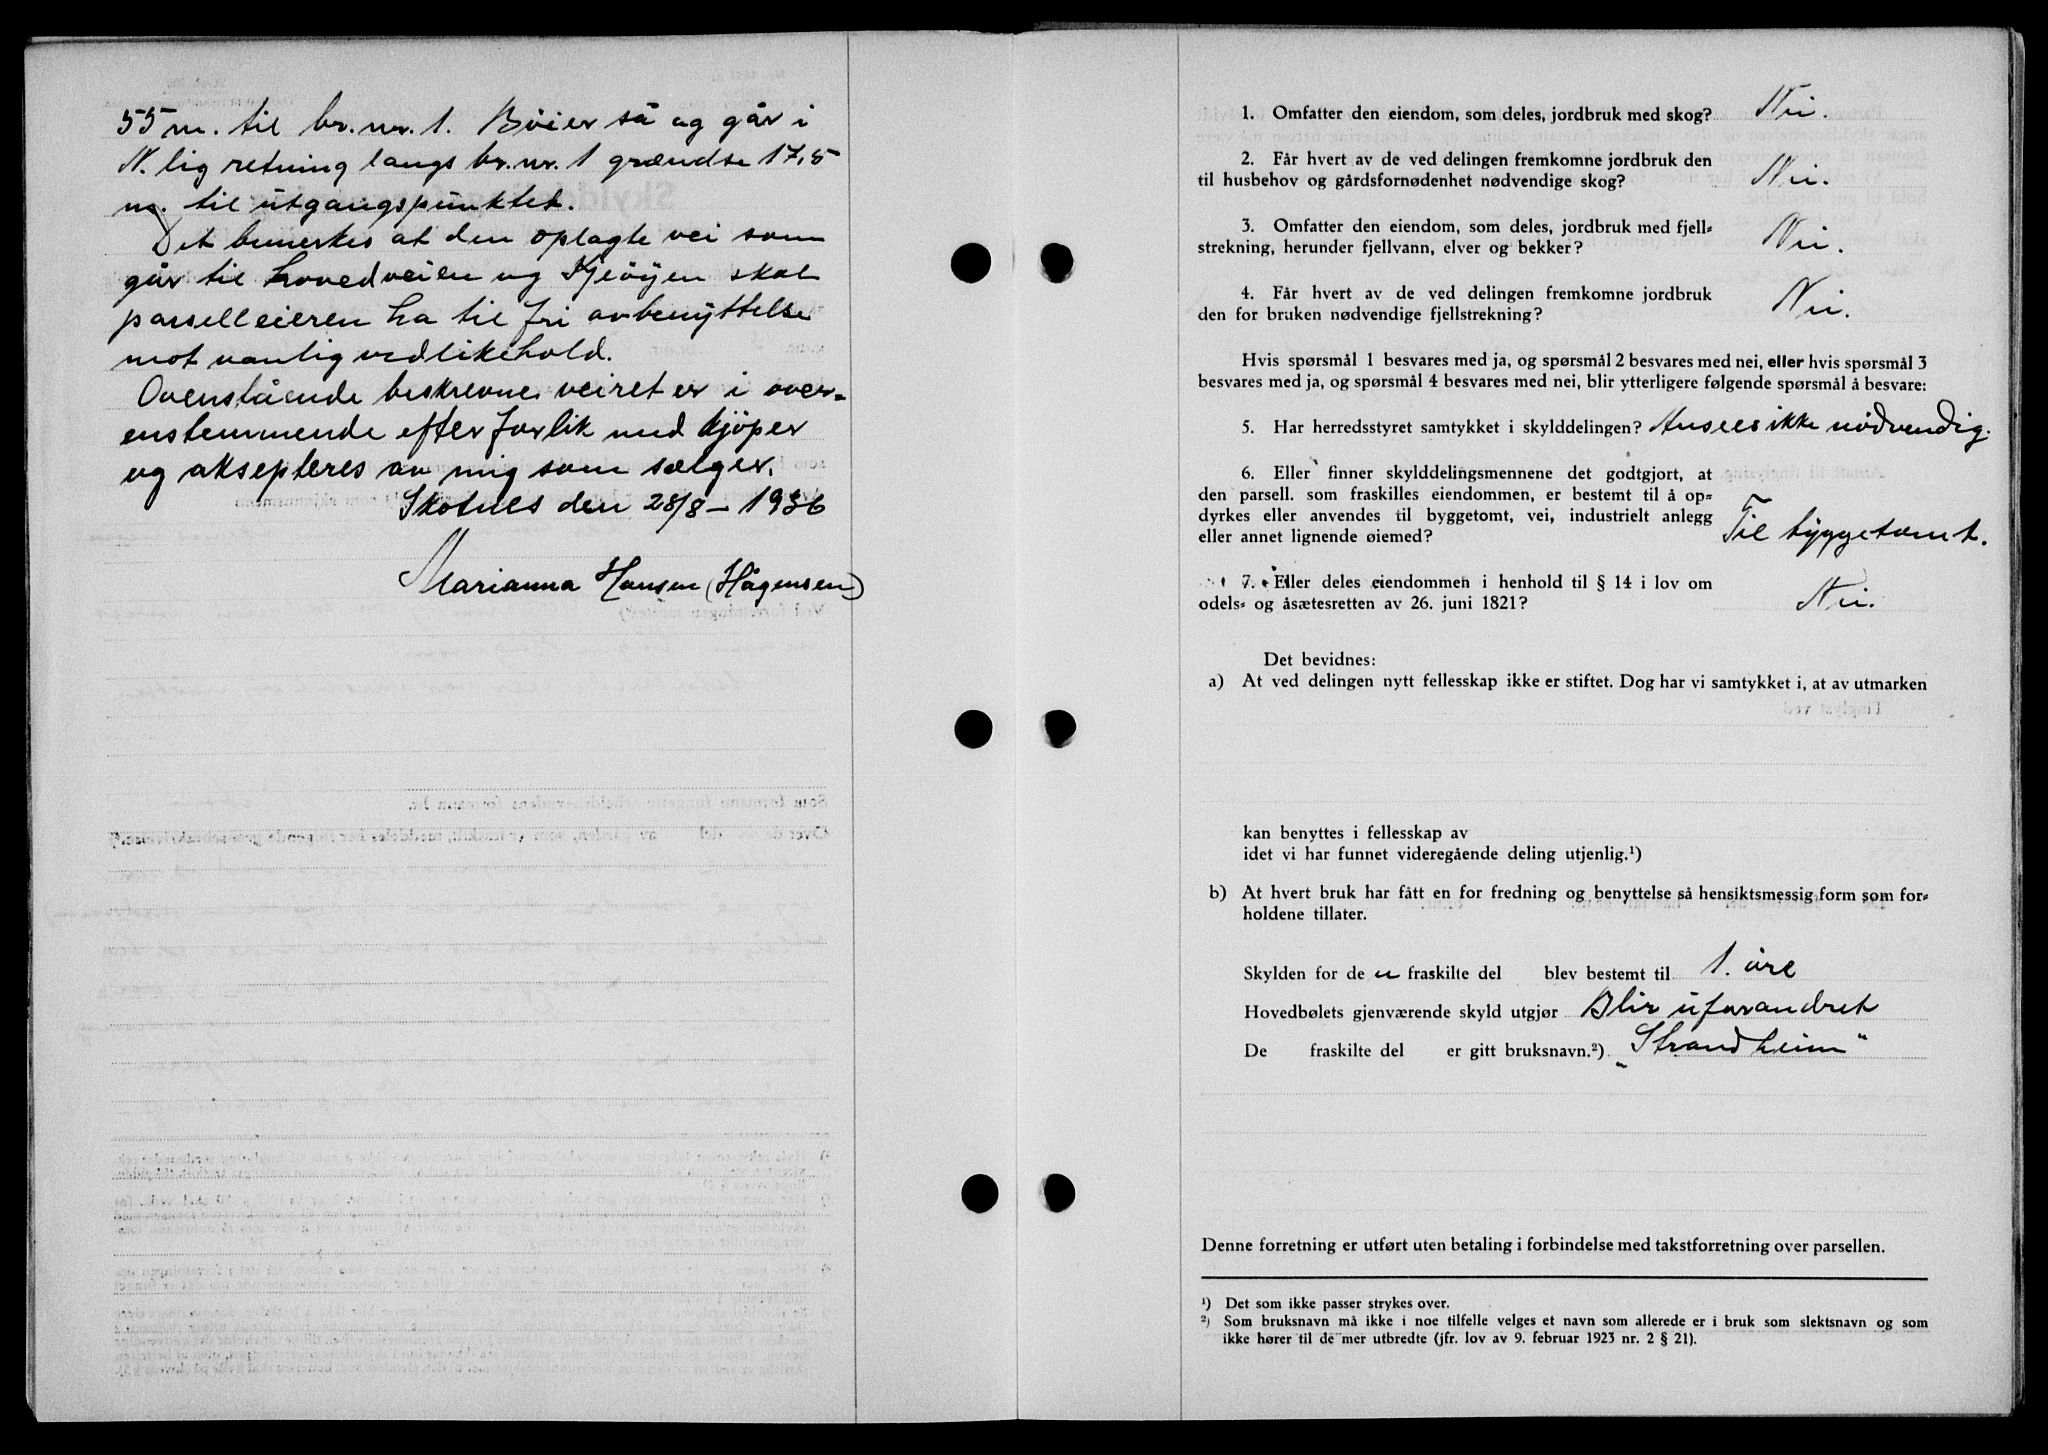 55 m. til br. nr. 1. Böier så og går i
N. lig retning langs br. nr. 1 grændse 17,5
m. til utgangspunktet.
Det bemerkes at den oplagte vei som
går til hovedveien og Kjeöyen skal
parselleieren ha til fri avbenyttelse
mot vanlig vedlikehold.
Ovenstående beskrevne veiret er i over-
enstemmende efter forlik med kjöper
og aksepteres av mig som sælger.
Skotnes den 28/8 – 1936
Marianna Hansen (Hågensen)
1. Omfatter den eiendom, som deles, jordbruk med skog? Nei.
2. Får hvert av de ved delingen fremkomne jordbruk den
til husbehov og gårdsfornødenhet nødvendige skog? Nei.
3. Omfatter den eiendom, som deles, jordbruk med fjell-
strekning, herunder fjellvann, elver og bekker? Nei.
4. Får hvert av de ved delingen fremkomne jordbruk
den for bruken nødvendige fjellstrekning? Nei.
Hvis spørsmål 1 besvares med ja, og spørsmål 2 besvares med nei, eller hvis spørsmål 3
besvares med ja, og spørsmål 4 besvares med nei, blir ytterligere følgende spørsmål å besvare:
5. Har herredsstyret samtykket i skylddelingen? Ansees ikke nödvendig.
6. Eller finner skylddelingsmennene det godtgjort, at
den parsell. som fraskilles eiendommen, er bestemt til å op-
dyrkes eller anvendes til byggetomt, vei, industrielt anlegg
eller annet lignende øiemed? Til byggetomt.
7. Eller deles eiendommen i henhold til § 14 i lov om
odels- og åsætesretten av 26. juni 1821? Nei.
Det bevidnes:
a) At ved delingen nytt fellesskap ikke er stiftet. Dog har vi samtykket i, at av utmarken
kan benyttes i fellesskap av
idet vi har funnet videregående deling utjenlig.¹)
b) At hvert bruk har fått en for fredning og benyttelse så hensiktsmessig form som for-
holdene tillater.
Skylden for de n fraskilte del blev bestemt til 1. öre
Hovedbølets gjenværende skyld utgjør Blir uforandret
De fraskilte del er gitt bruksnavn.²) „Strandheim"
Denne forretning er utført uten betaling i forbindelse med takstforretning over parsellen.
¹) Det som ikke passer strykes over.
²) Som bruksnavn må ikke i noe tilfelle velges et navn som allerede er i bruk som slektsnavn og som
ikke hører til de mer utbredte (jfr. lov av 9. februar 1923 nr. 2 § 21).